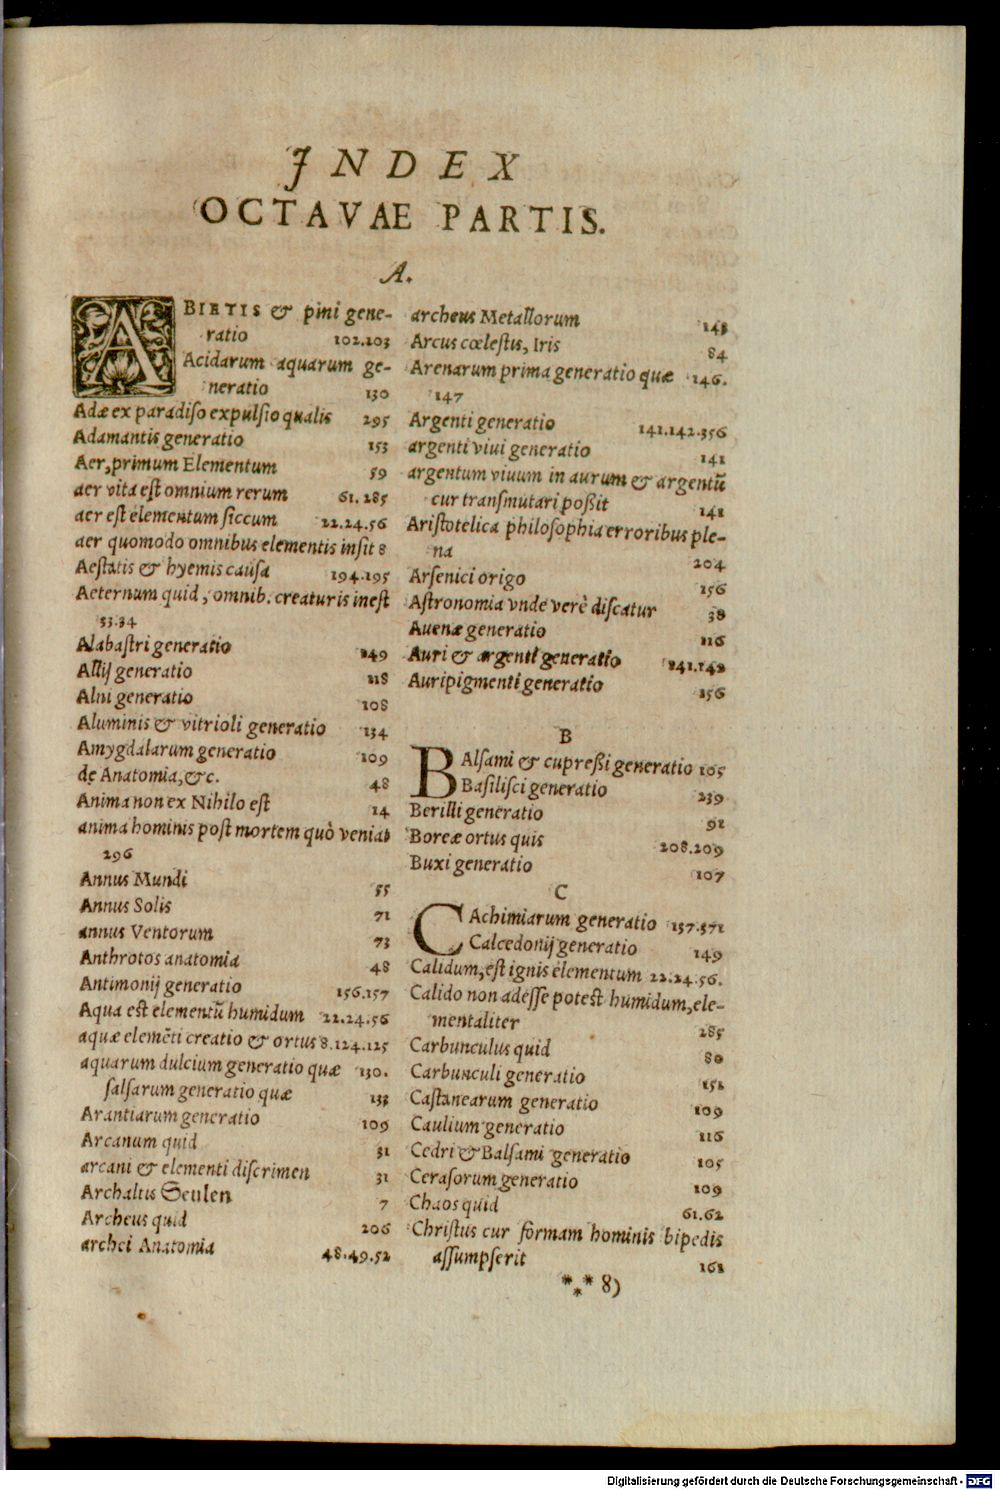 INDEX
OCTAVAE PARTIS.
A.
ABIETIS & pini gene-
ratio 102.103
Acidarum aquarum ge-
neratio 130
Adæ ex paradiso expulsio qualis 295
Adamantis generatio 153
Aer, primum Elementum 59
aer vita est omnium rerum 61.285
aer est elementum siccum 22.24.56
aer quomodo omnibus elementis insit 8
Aestatis & hyemis causa 194.195
Aeternum quid, omnib. creaturis inest
33.34
Alabastri generatio 149
Allij generatio 118
Alni generatio 108
Aluminis & vitrioli generatio 134
Amygdalarum generatio 109
de Anatomia, &c. 48
Anima non ex Nihilo est 14
anima hominis post mortem quò veniat
296
Annus Mundi 55
Annus Solis 71
annus Ventorum 73
Anthrotos anatomia 48
Antimonij generatio 156.157
Aqua est elementũ humidum 22.24.56
aquæ elemẽti creatio & ortus 8.124.125
aquarum dulcium generatio quæ 130.
salsarum generatio quæ 133
Arantiarum generatio 109
Arcanum quid 31
arcani & elementi discrimen 31
Archaltis Seulen 7
Archeus quid 206
archei Anatomia 48.49.52
archeus Metallorum 143
Arcus cœlestus, Iris 84
Arenarum prima generatio quæ 146.
147
Argenti generatio 141.142.356
argenti viui generatio 141
argentum viuum in aurum & argentũ
cur transmutari poßit 141
Aristotelica philosophia erroribus ple-
na 204
Arsenici origo 156
Astronomia vnde verè discatur 38
Auenæ generatio 116
Auri & argenti generatio 141.142
Auripigmenti generatio 156
B
BAlsami & cupreßi generatio 105
Basilisci generatio 239
Berilli generatio 91
Boreæ ortus quis 208.209
Buxi generatio 107
C
CAchimiarum generatio 157.371
Calcedonij generatio 149
Calidum, est ignis elementum 22.24.56.
Calido non adesse potest humidum, ele-
mentaliter 285
Carbunculus quid 80
Carbunculi generatio 151
Castanearum generatio 109
Caulium generatio 116
Cedri & Balsami generatio 105
Cerasorum generatio 109
Chaos quid 61.62
Christus cur formam hominis bipedis
assumpserit 161
*⁎* 8)
Digitalisierung gefördert durch die Deutsche Forschungsgemeinschaft - DFG